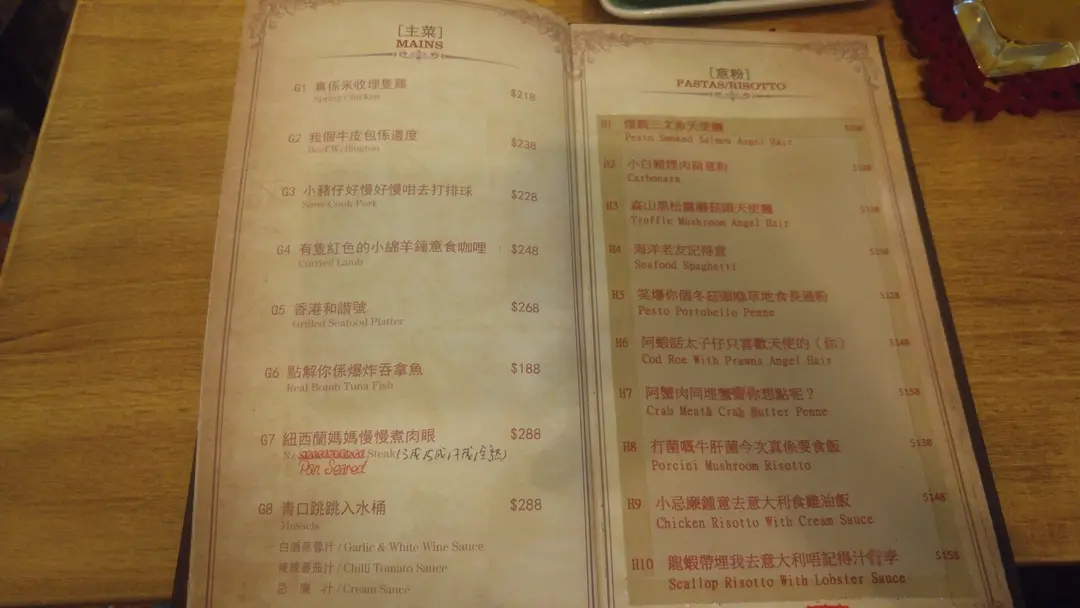 [主菜]
MAINS
G1 真係米收埋隻雞 $218
Spring Chicken
G2 我個牛皮包係邊度 $238
Beef Wellington
G3 小豬仔好慢好慢咁去打排球 $228
Slow Cook Pork
G4 有隻紅色的小綿羊鍾意食咖哩 $248
Curried Lamb
G5 香港和諧號 $268
Grilled Seafood Platter
G6 點解你係爆炸吞拿魚 $188
Real Bomb Tuna Fish
G7 紐西蘭媽媽慢慢煮肉眼 $288
Steak (3成 5成 7成 全熟)
Pan Seared
G8 青口跳跳入水桶 $288
Mussels
白酒蒜蓉汁 / Garlic & White Wine Sauce
辣辣蕃茄汁 / Chilli Tomato Sauce
忌廉汁 / Cream Sauce
[意粉]
PASTAS/RISOTTO
H1 三文魚天使麵
Pesto Smoked Salmon Angel Hair
H2 小白豬煙肉 意粉
Carbonara
H3 森山黑松露蘑菇頭天使麵
Truffle Mushroom Angel Hair
H4 海洋老友記得意
Seafood Spaghetti
H5 笑爆你個冬菇頭喺草地食長通粉
Pesto Portobello Penne
H6 阿蝦話太子仔只喜歡天使的(你)
Cod Roe With Prawns Angel Hair
H7 阿蟹肉同埋蟹膏你想點呢？ $158
Crab Meat& Crab Butter Penne
H8 冇菌嘅牛肝菌今次真係要食飯 $138
Porcini Mushroom Risotto
H9 小忌廉鍾意去意大利食雞油飯 $148
Chicken Risotto With Cream Sauce
H10 龍蝦帶埋我去意大利唔記得汁行李 $158
Scallop Risotto With Lobster Sauce